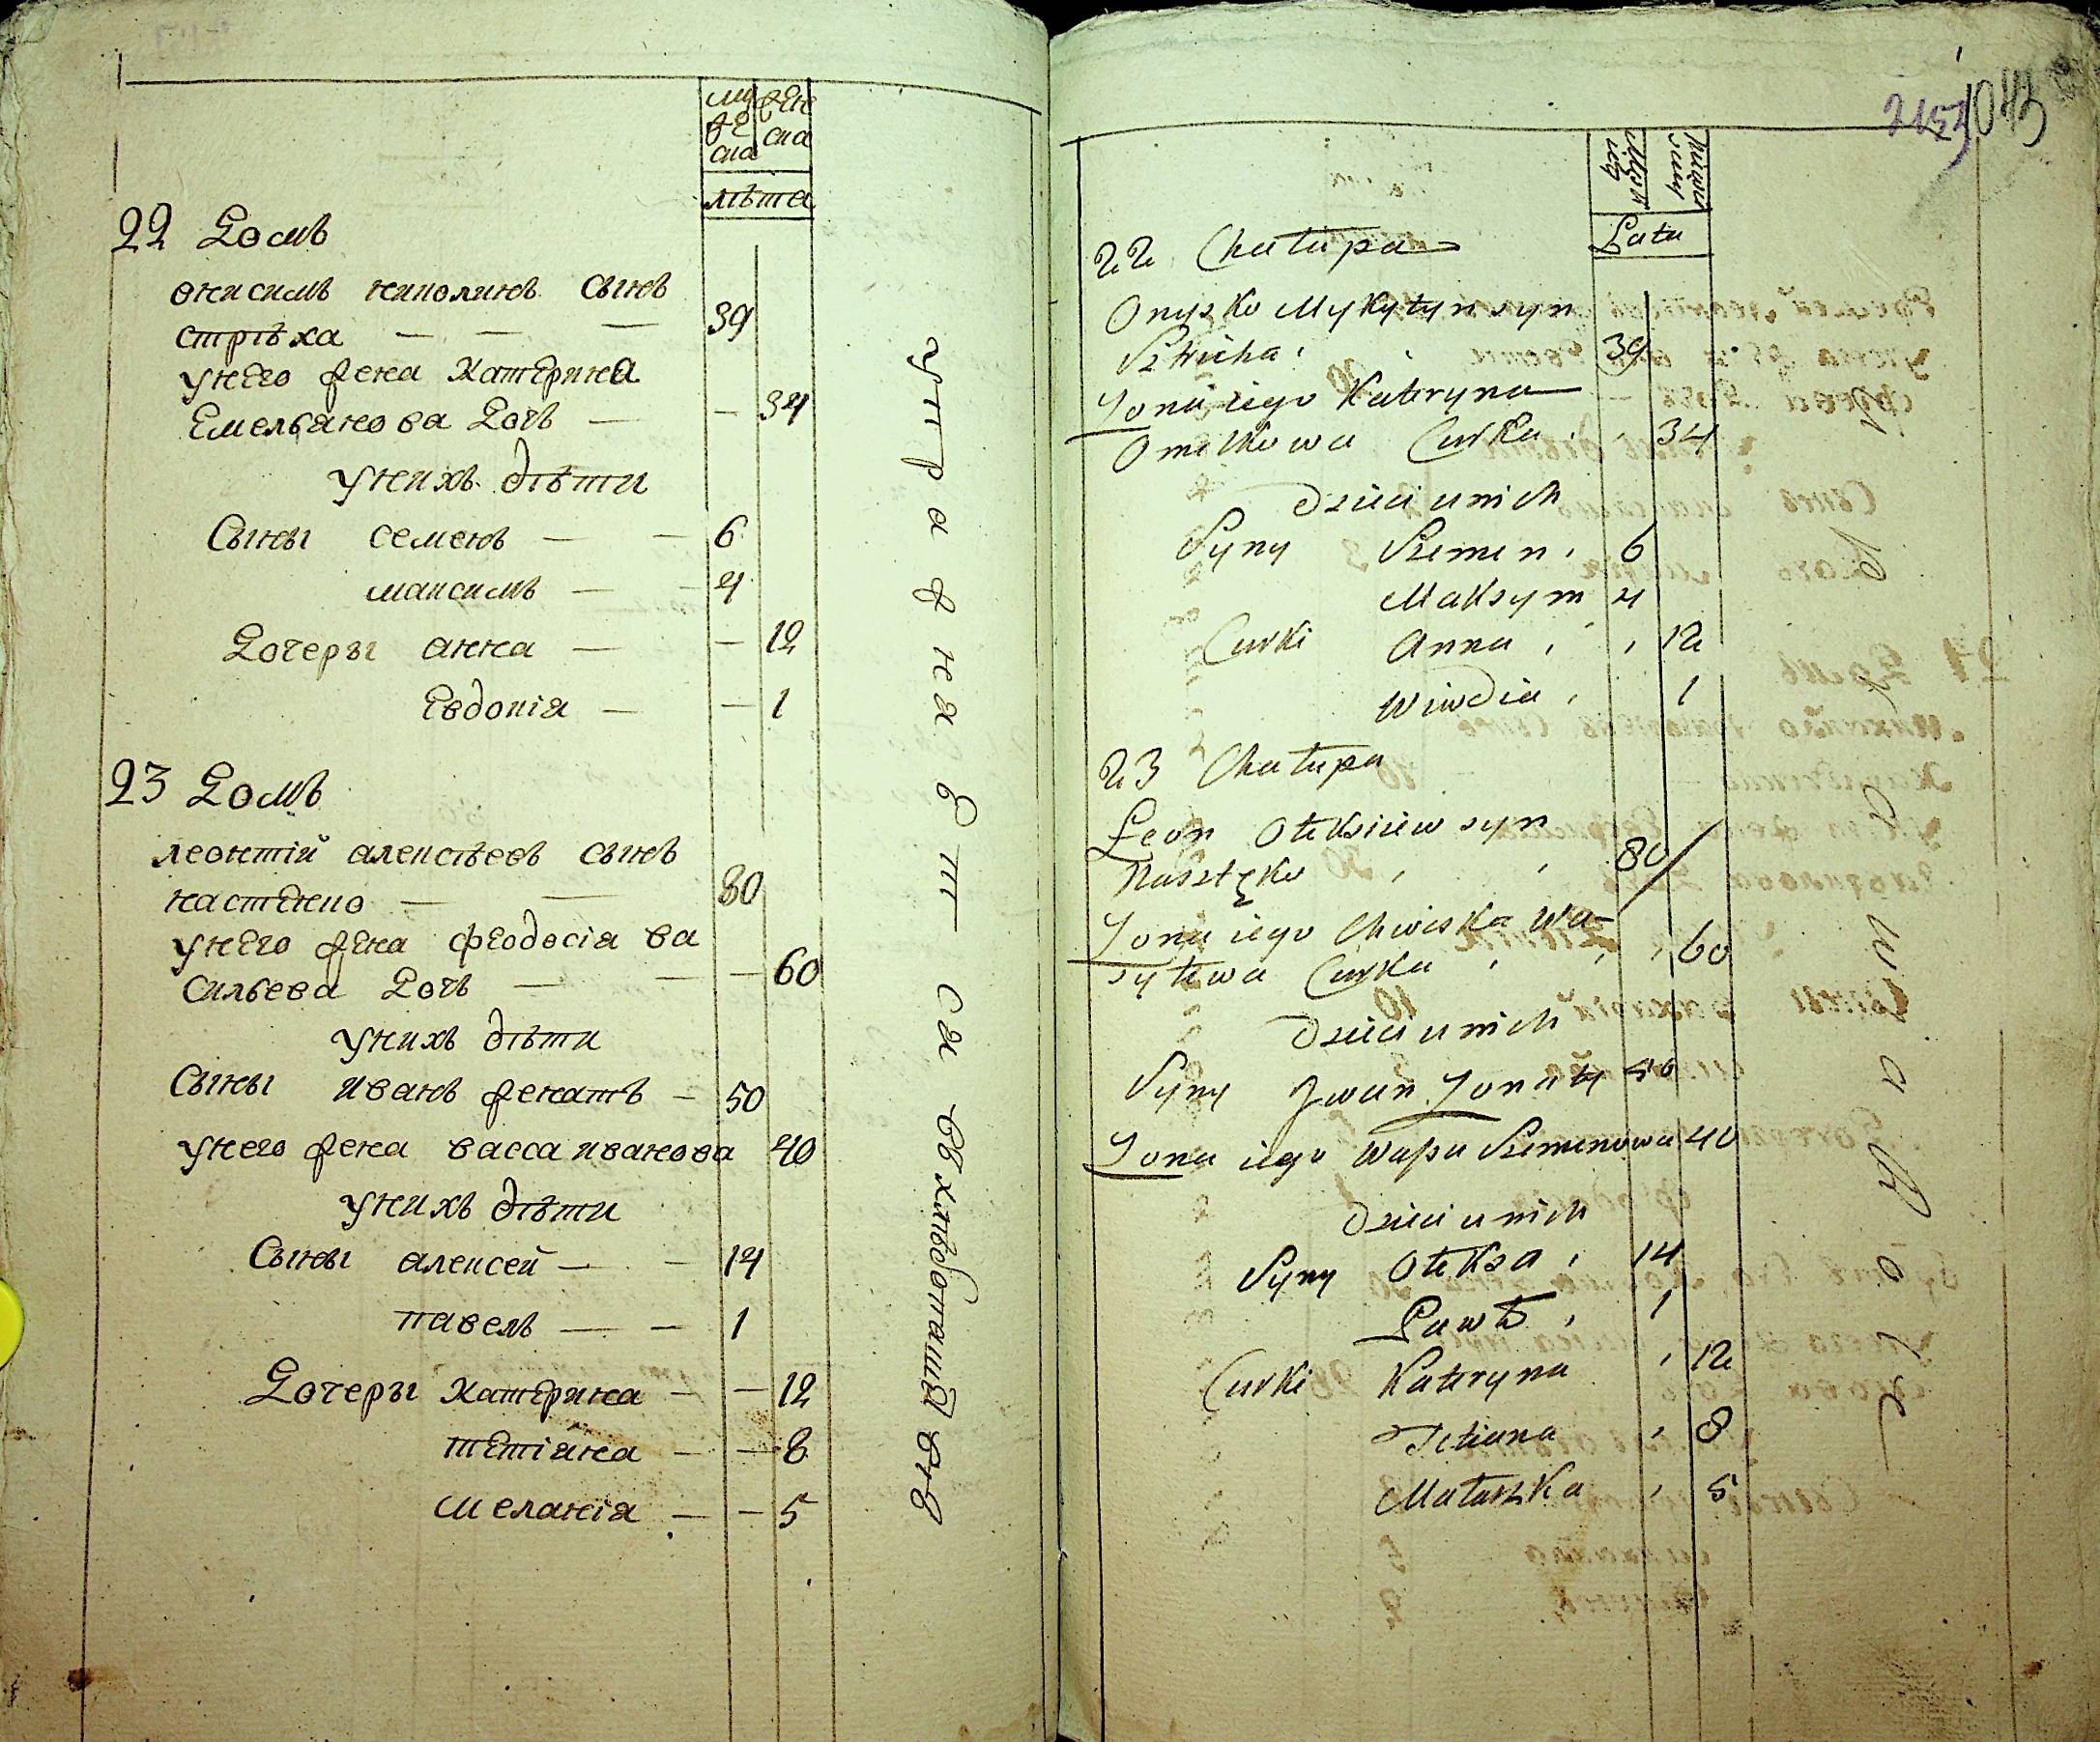 муже ска
жен ска
лѣта
22 Домъ
онисимъ никитинъ сынъ
стрѣха — — — 39
унего жена Катерина
Емельанова Дочъ — — 34
унихъ дѣти
Сыны семенъ — — 6
максимъ — — 4
Дочеры анна — — 12
Евдокіа — — 1
23 Домъ
леонтій алексѣевъ сынъ
настенко — — 80
унего жена феодосіа ва
сильева Дочъ — — — 60
унихъ дѣти
Сыны иванъ женатъ — 50
унего жена васса иванова 40
унихъ дѣти
Сыны алексей — — 14
павелъ — — 1
Дочеры Катерина — — 12
тетіана — — 8
меланіа — — 5
упражнаетса въ хлѣбопашествѣ
1043
Lata
22 Chałupa
Onysko Mykytyn syn
Stricha 39
Żona iego Kateryna
Omelkowa Curka 34
Dzieci u nich
Syny Semen 6
Maksym 4
Curki Anna 12
Wiwdia 1
23 Chałupa
Leon Oleksiiew syn
80
Żona iego Chwiska Wa-
sylewa Curka 60
Dzieci u nich
Syny Jwan Żonaty 50
Żona iego Wasa Semenowa 40
Dzieci u nich
Syny Oleksa 14
Pawło 1
Curki Kateryna 12
Tetiana 8
Małaszka 5